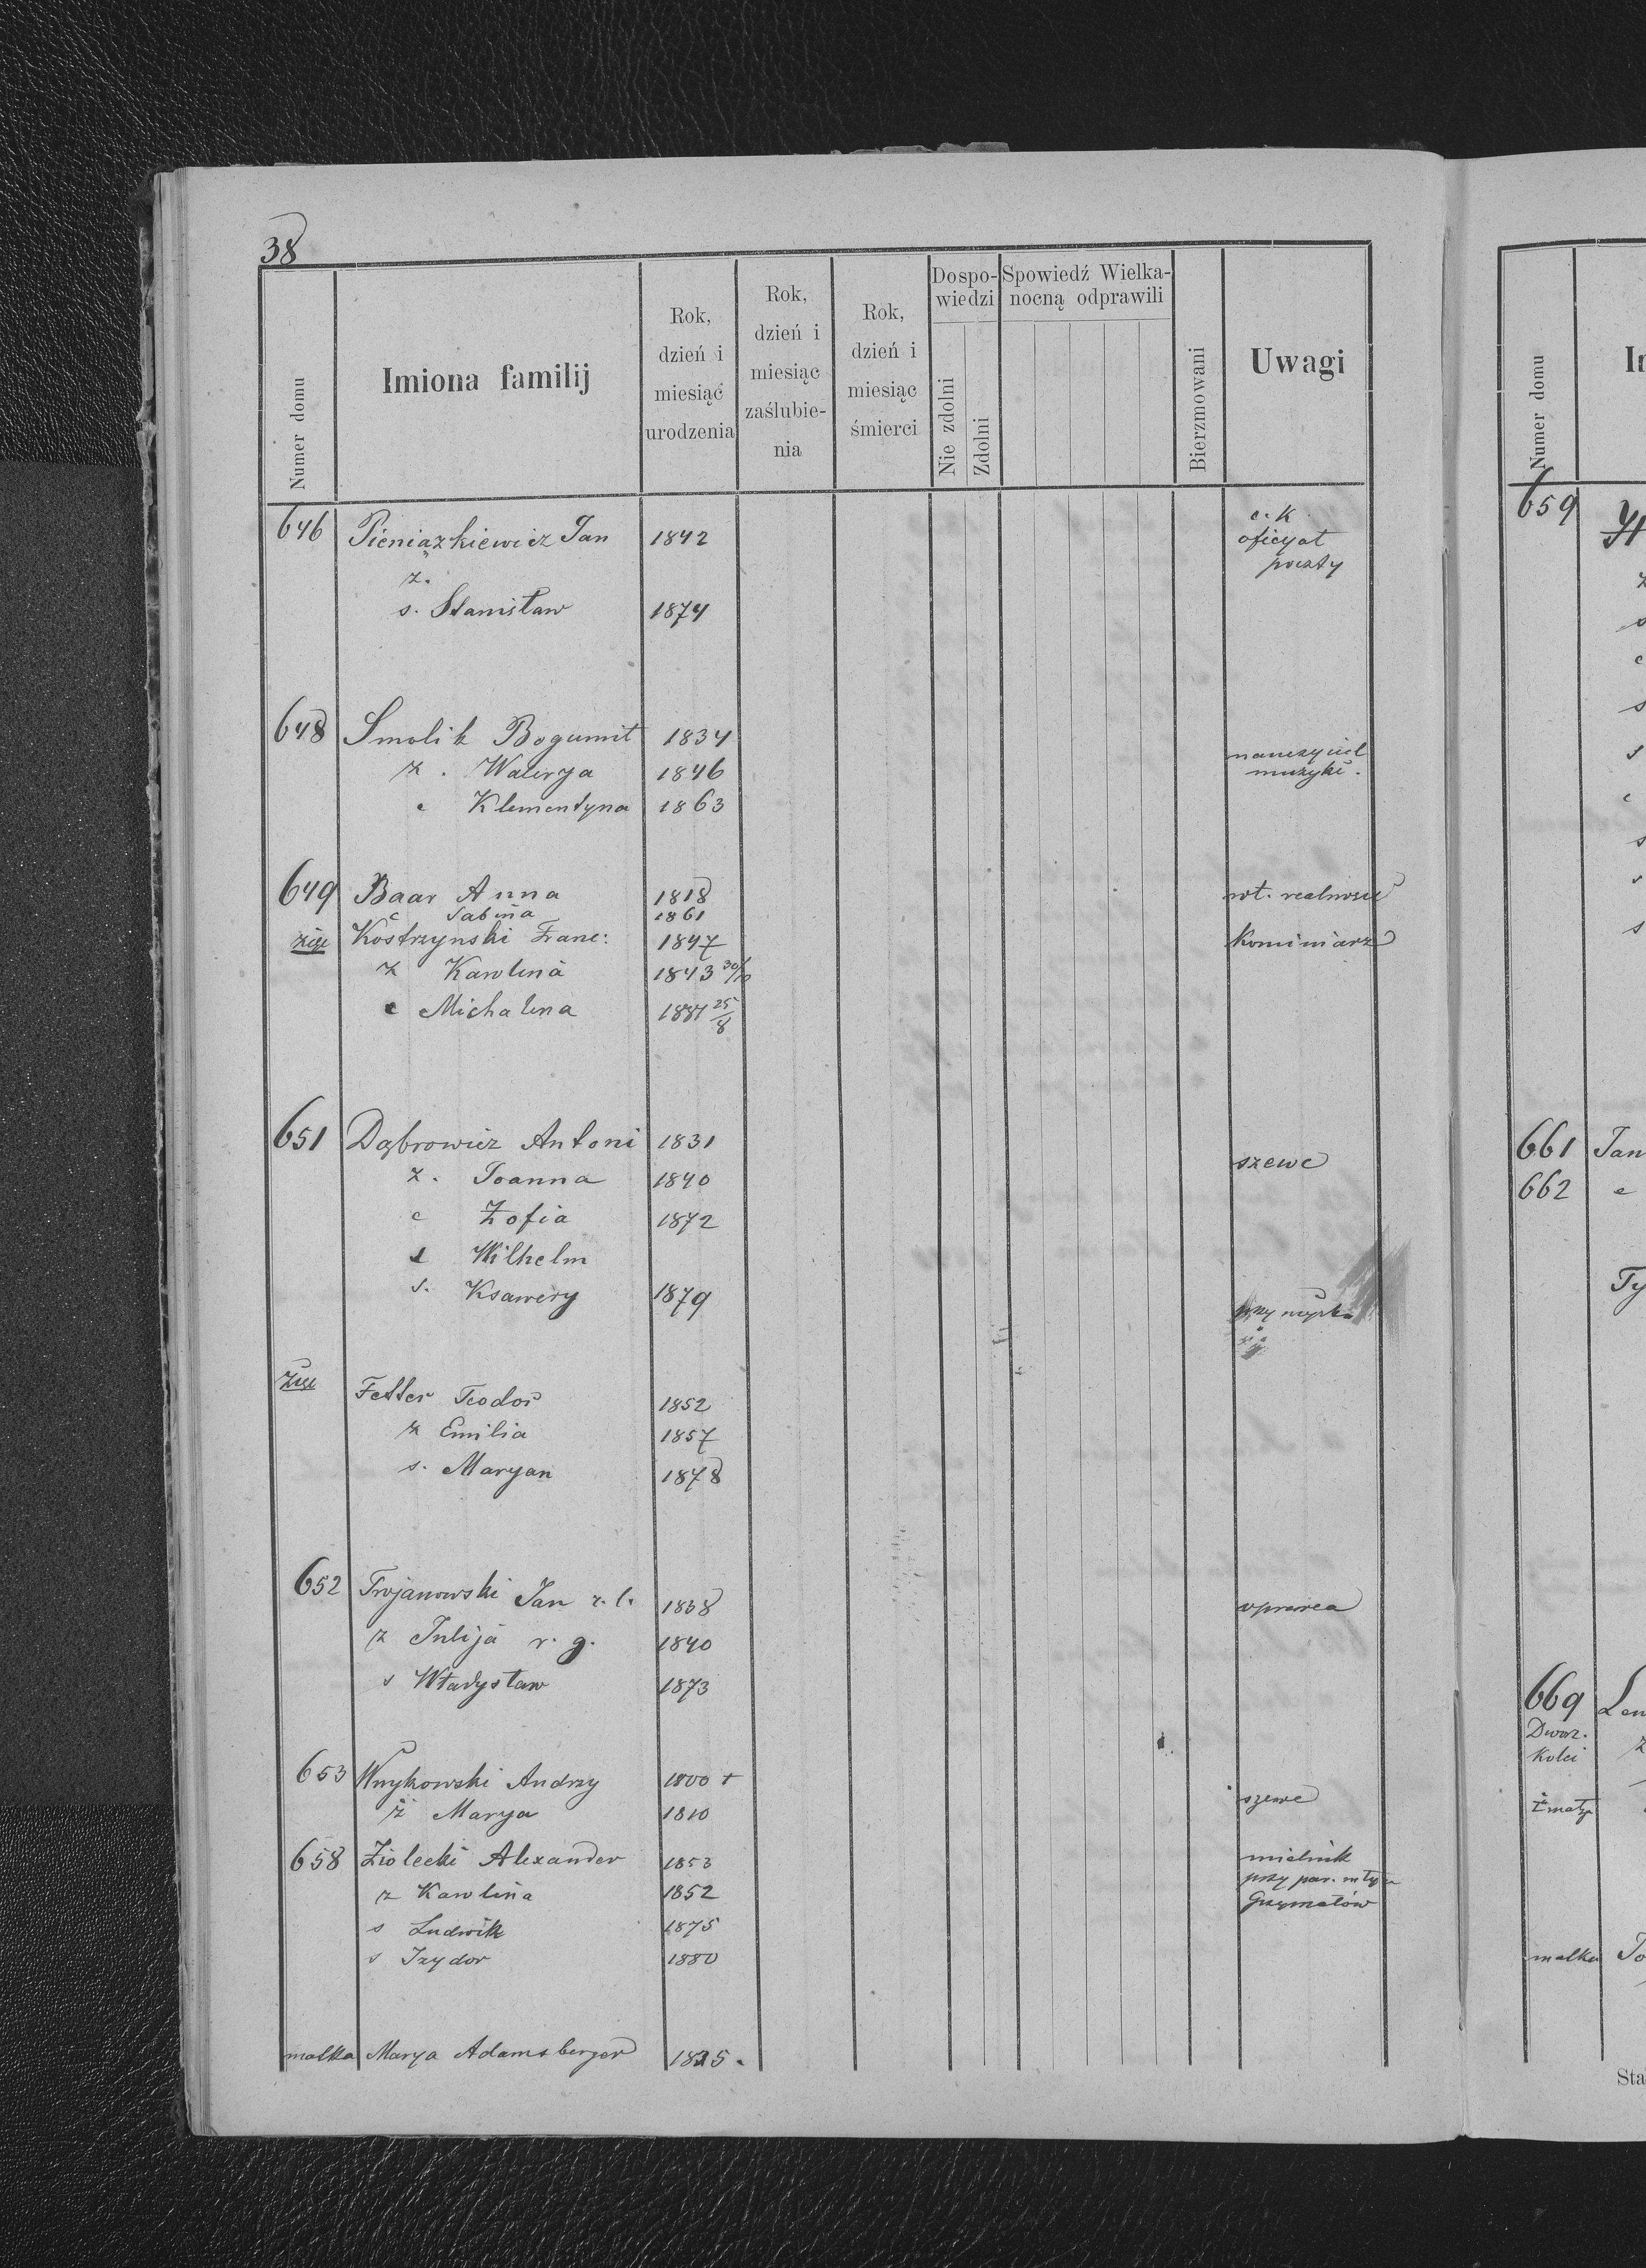 38
Numer domu
Imiona familij
Rok, dzień i miesiąć urodzenia
Rok, dzień i miesiąc zaślubie-nia
Rok, dzień i miesiąc śmierci
Dospo-wiedzi
Nie zdolni
Zdolni
Spowiedź Wielka-nocną odprawili
Bierzmowani
Uwagi
646 Pieniązkiewicz Jan 1842 c. k. oficyał poczty
z.
s. Stanisław 1874
648 Smolik Bogumił 1834 nauczyciel muzyki.
z. Walerya 1846
c Klementyna 1863
649 Baar Anna 1818 wł. realności
c Sabina 1861
zięć Kostrzynski Franc: 1847 Kominiarz
z Karolina 1843 30/10
c Michalina 1881 25/8
651 Dąbrowicz Antoni 1831 szewc
z. Joanna 1840
c Zofia 1872
s Wilhelm
s. Ksawery 1879
zięć Fetter Teodor 1852
z Emilia 1857
s. Maryan 1878
652 Trojanowski Jan r. l. 1838 oprawca
z Julija r. g. 1840
s Władysław 1873
653 Wnykowski Andrzy 1800 +
ż Marya 1810 szewc
658 Ziolecki Alexander 1853 mielnik
z Karolina 1852 przy par. młynie
s Ludwik 1875 Grzymałów
s Izydor 1880
matka Marya Adamsberger
Numer domu
659
661 Jan
662 c
Ty
669
Dworz.
Kolei
matka
Sta